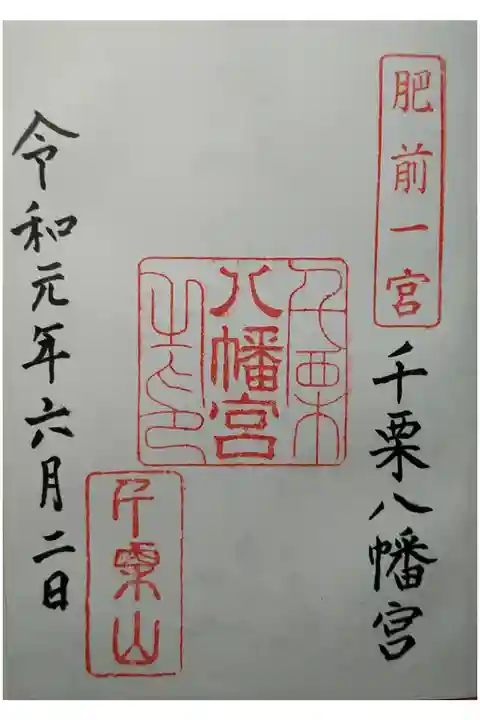 肥前一宮
千栗八幡宮
千栗
八幡宮
之印
千栗山
令和元年六月二日